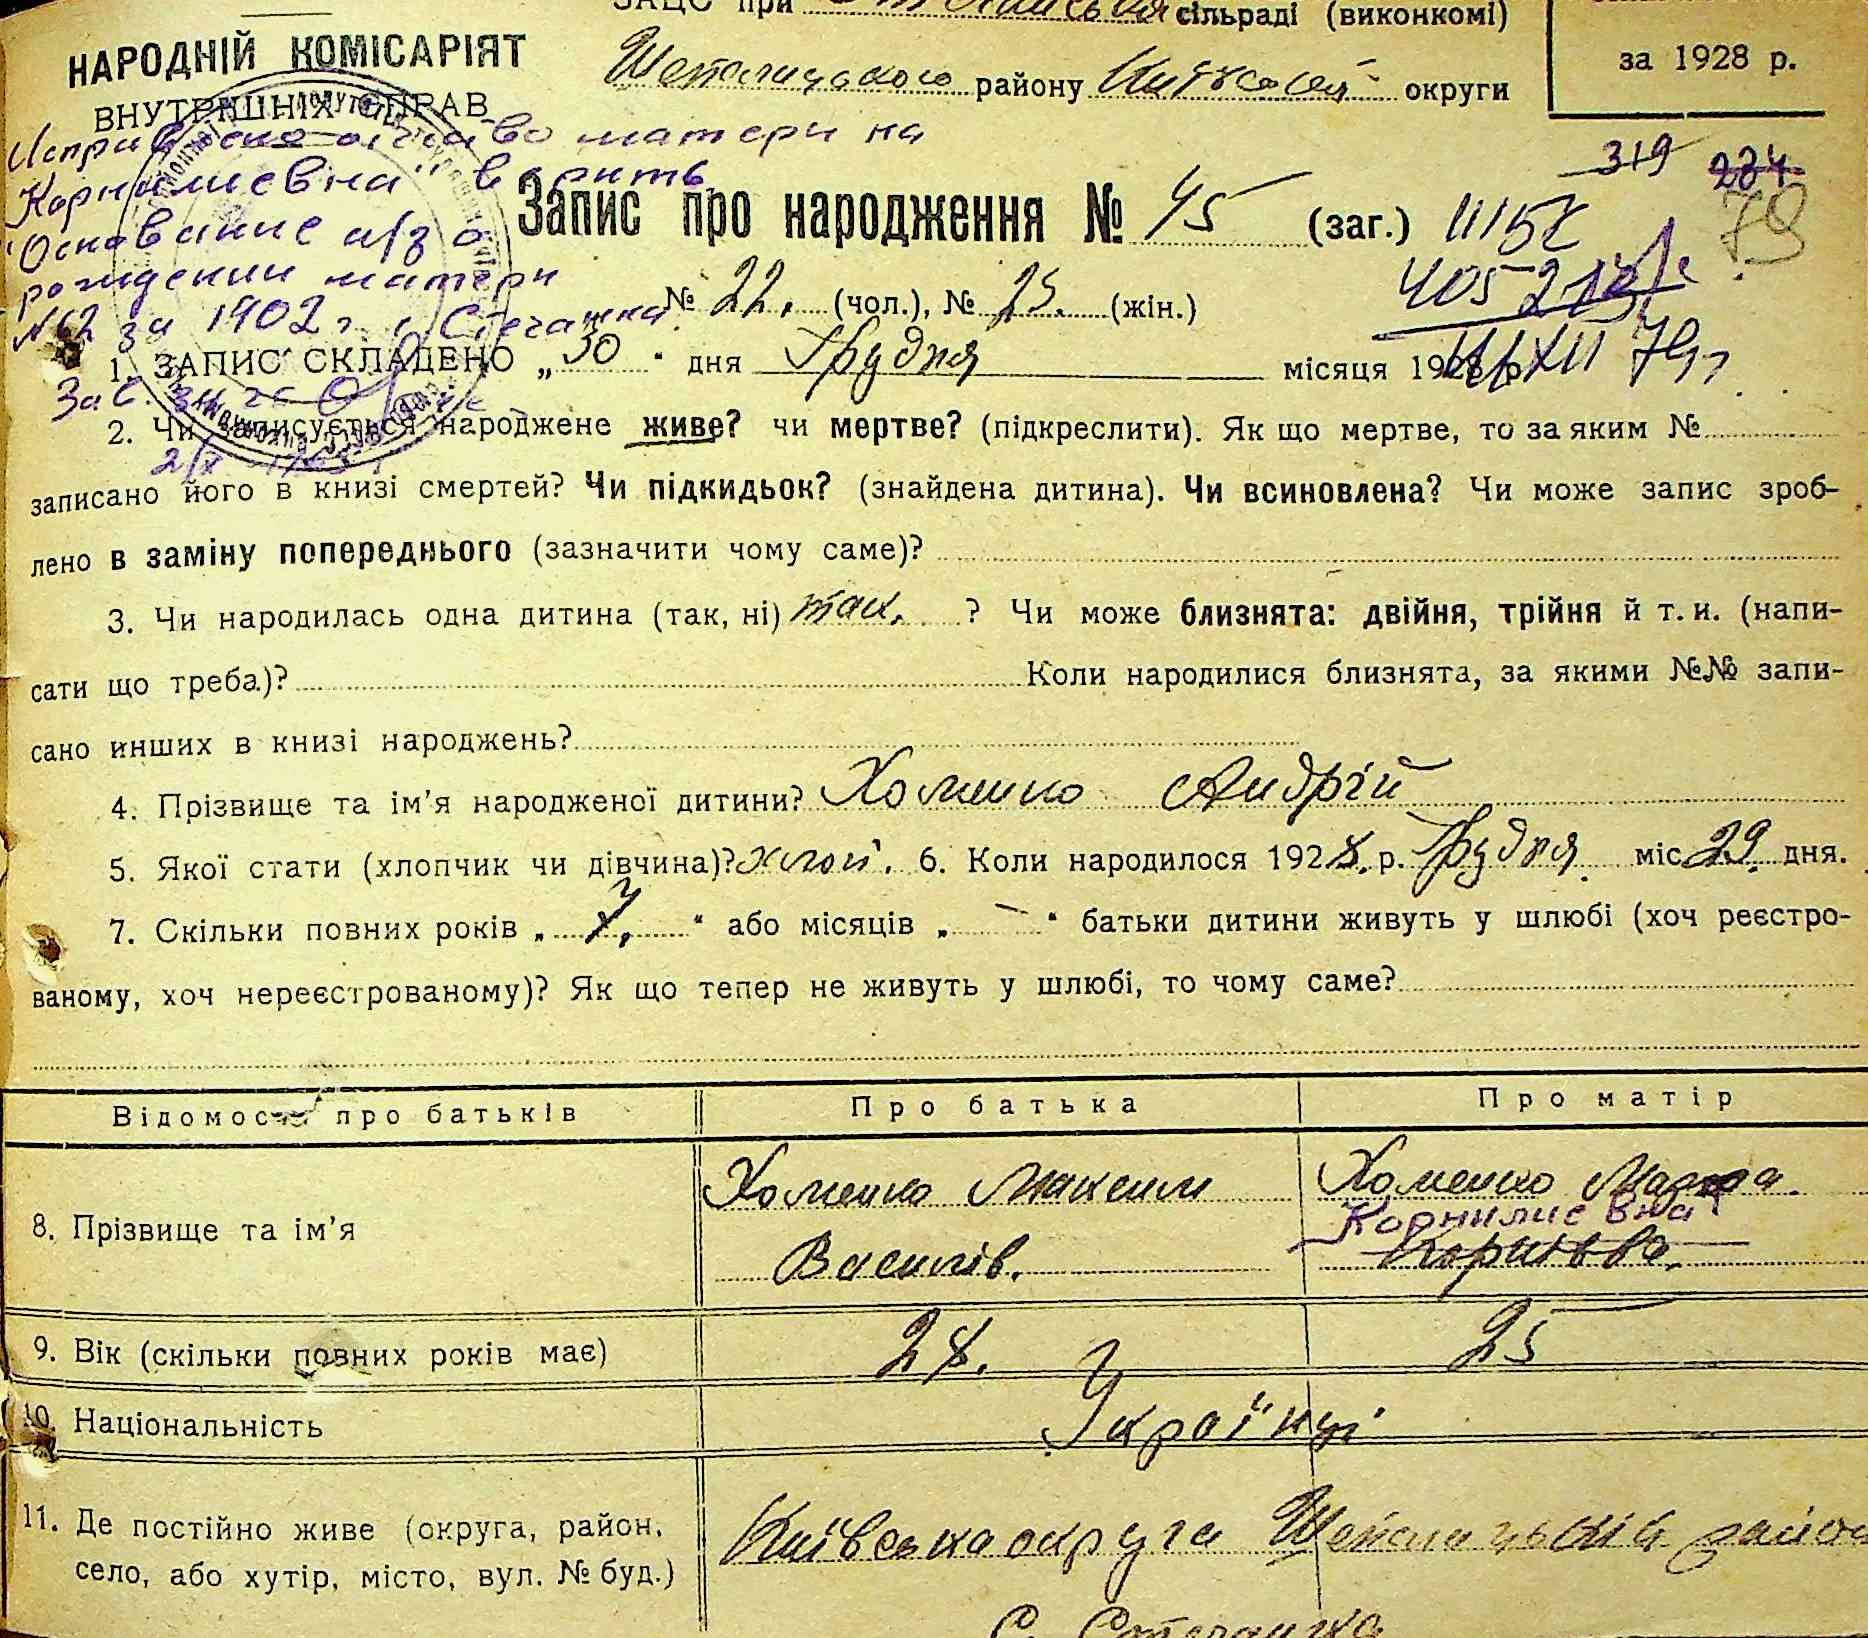 ЗАЦС при сільраді (виконкомі)
НАРОДНІЙ КОМІСАРІЯТ
ВНУТРІШНІХ СПРАВ
Шепелицького району Київської округи
за 1928 р.
Исправлено отчество матери на
"Корнилиевна"
Основание а/з о
рождении матери
№62 за 1902 г. с. Стечанка
Запис про народження № 45 (заг.)
319 284 79
№ 22. (чол.), № 23. (жін.)
1. ЗАПИС СКЛАДЕНО „30“ дня Грудня місяця 1928 р.
2. Чи записується народжене живе? чи мертве? (підкреслити). Як що мертве, то за яким №
записано його в книзі смертей? Чи підкидьок? (знайдена дитина). Чи всиновлена? Чи може запис зроб-
лено в заміну попереднього (зазначити чому саме)?
3. Чи народилась одна дитина (так, ні) так. ? Чи може близнята: двійня, трійня й т. и. (напи-
сати що треба)? Коли народилися близнята, за якими №№ запи-
сано инших в книзі народжень?
4. Прізвище та ім'я народженої дитини? Хоменко Андрій
5. Якої стати (хлопчик чи дівчина)? хлоп. 6. Коли народилося 1928. р. Грудня міс. 29. дня.
7. Скільки повних років „ “ або місяців „ — “ батьки дитини живуть у шлюбі (хоч реєстро-
ваному, хоч нереєстрованому)? Як що тепер не живуть у шлюбі, то чому саме?
Відомости про батьків Про батька Про матір
8. Прізвище та ім'я Хоменко Максим Хоменко
Корнилиевна
Василів.
9. Вік (скільки повних років має) 28. 25
10. Національність Українці
11. Де постійно живе (округа, район,
село, або хутір, місто, вул. № буд.)
Київська округа Шепелицький район
С. Стечанка